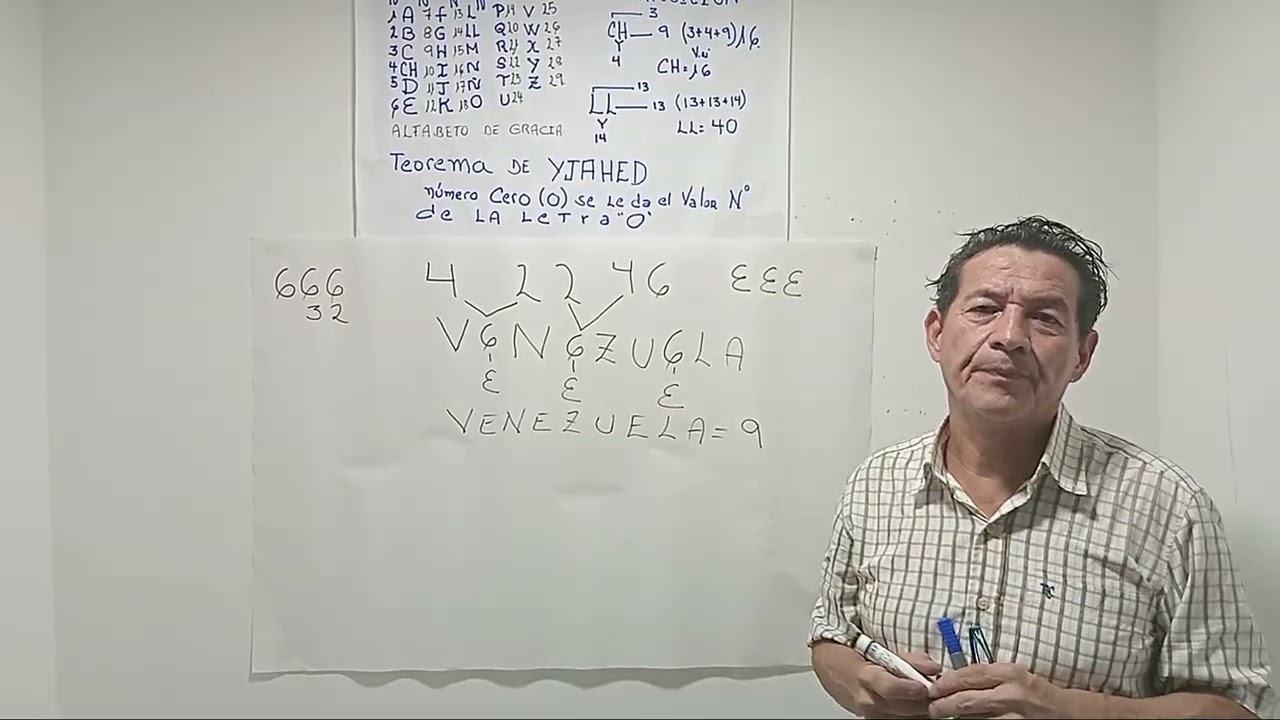 1 A 7 f 13 L P 19 V 25
2 B 8 G 14 LL Q 20 W 26
3 C 9 H 15 M R 21 X 27
4 CH 10 I 16 N S 22 Y 28
5 D 11 J 17 Ñ T 23 Z 29
6 E 12 K 18 O U 24
ALFABETO DE GRACIA
3
CH 9 (3+4+9) 16
Y
4
CH=16
13
LL 13 (13+13+14)
Y LL=40
14
Teorema DE YJAHED
número Cero (0) se le da el Valor N°
de LA Letra "O"
666 4 2 2 46 ƐƐƐ
32
V6N6ZU6LA
Ɛ Ɛ Ɛ
VENEZUELA=9